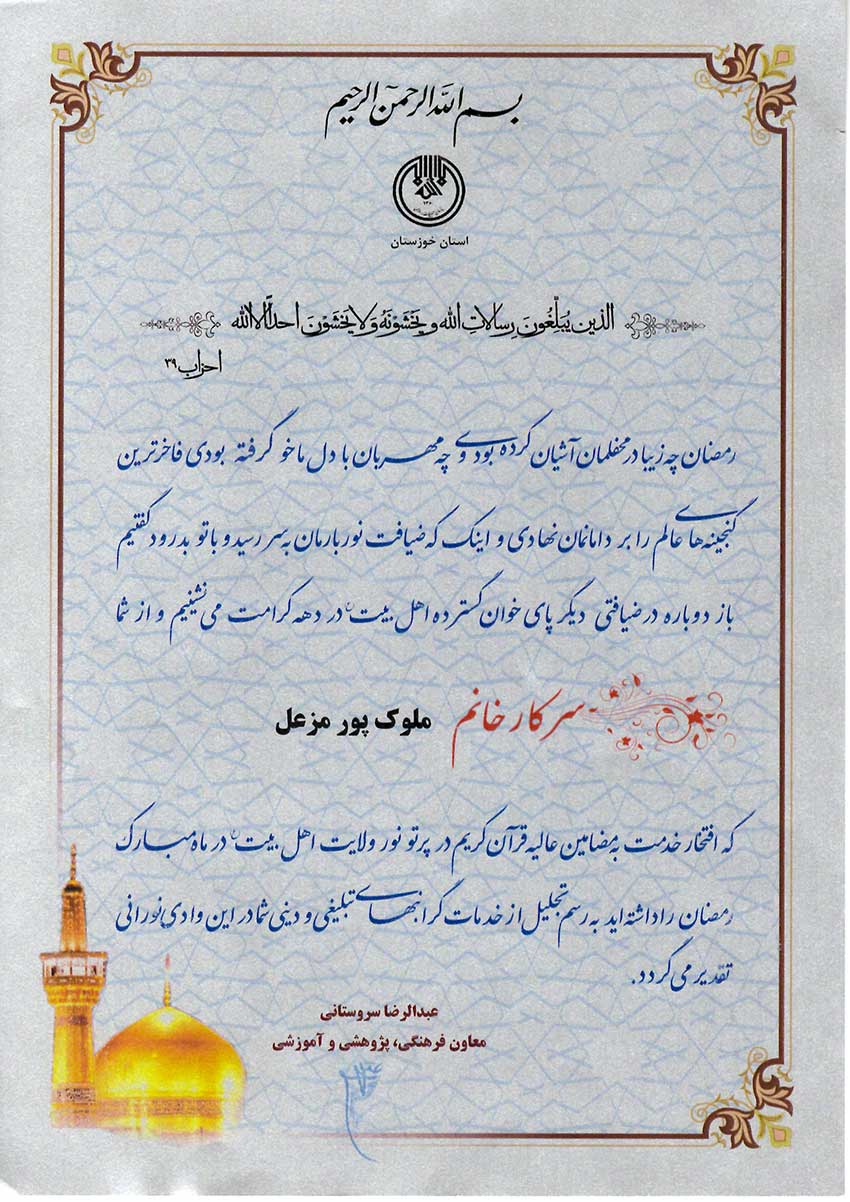 بسم الله الرحمن الرحیم
۱۳۶۰
استان خوزستان
الذین یُبَلِّغُونَ رِسالاتِ الله وَ یَخْشَوْنَهُ وَ لا یَخْشَوْنَ احداً الا الله
احزاب ۳۹
رمضان چه زیبا در محفلمان آشیان کرده بودی و چه مهربان با دل ما خو گرفته بودی فاخرترین
گنجینه‌های عالم را بر دامانمان نهادی و اینک که ضیافت نور بارمان به سر رسید و با تو بدرود گفتیم
باز دوباره در ضیافتی دیگر پای خوان گسترده اهل بیت (ع) در دهه کرامت می‌نشینیم و از شما
سرکار خانم ملوک پور مزعل
که افتخار خدمت به مضامین عالیه قرآن کریم در پرتو نور ولایت اهل بیت (ع) در ماه مبارک
رمضان را داشته‌اید به رسم تجلیل از خدمات گرانبهای تبلیغی و دینی شما در این وادی نورانی
تقدیر می گردد.
عبدالرضا سروستانی
معاون فرهنگی، پژوهشی و آموزشی